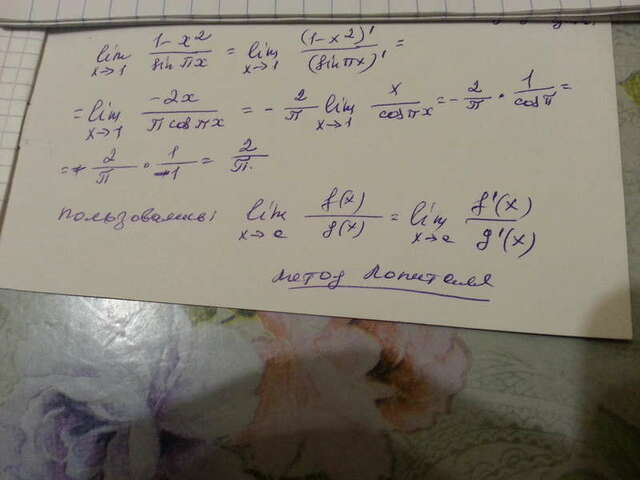 lim x→1 (1-x²)/(sin πx) = lim x→1 (1-x²)'/(sin πx)' =
= lim x→1 (-2x)/(π cos πx) = - 2/π lim x→1 x/(cos πx) = - 2/π · 1/(cos π) =
= - 2/π · 1/(-1) = 2/π.
lim x→c f(x)/g(x) = lim x→c f'(x)/g'(x)
метод Лопиталя